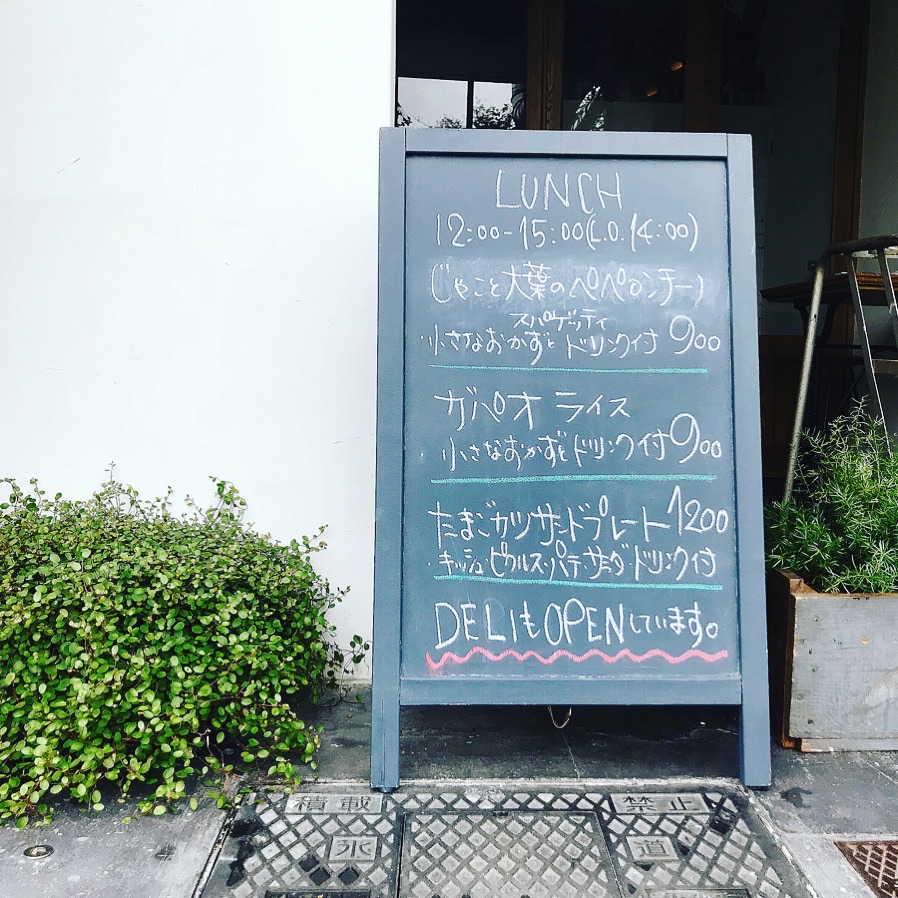 LUNCH
12:00-15:00(L.O.14:00)
じゃこと大葉のペペロンチーノ
スパゲッティ
・小さなおかずとドリンク付 900
ガパオライス
・小さなおかずとドリンク付 900
たまごカツサンドプレート 1200
・キッシュ・ピクルス・パテ・サラダ・ドリンク付
DELIもOPENしています。
積載 禁止
水 道